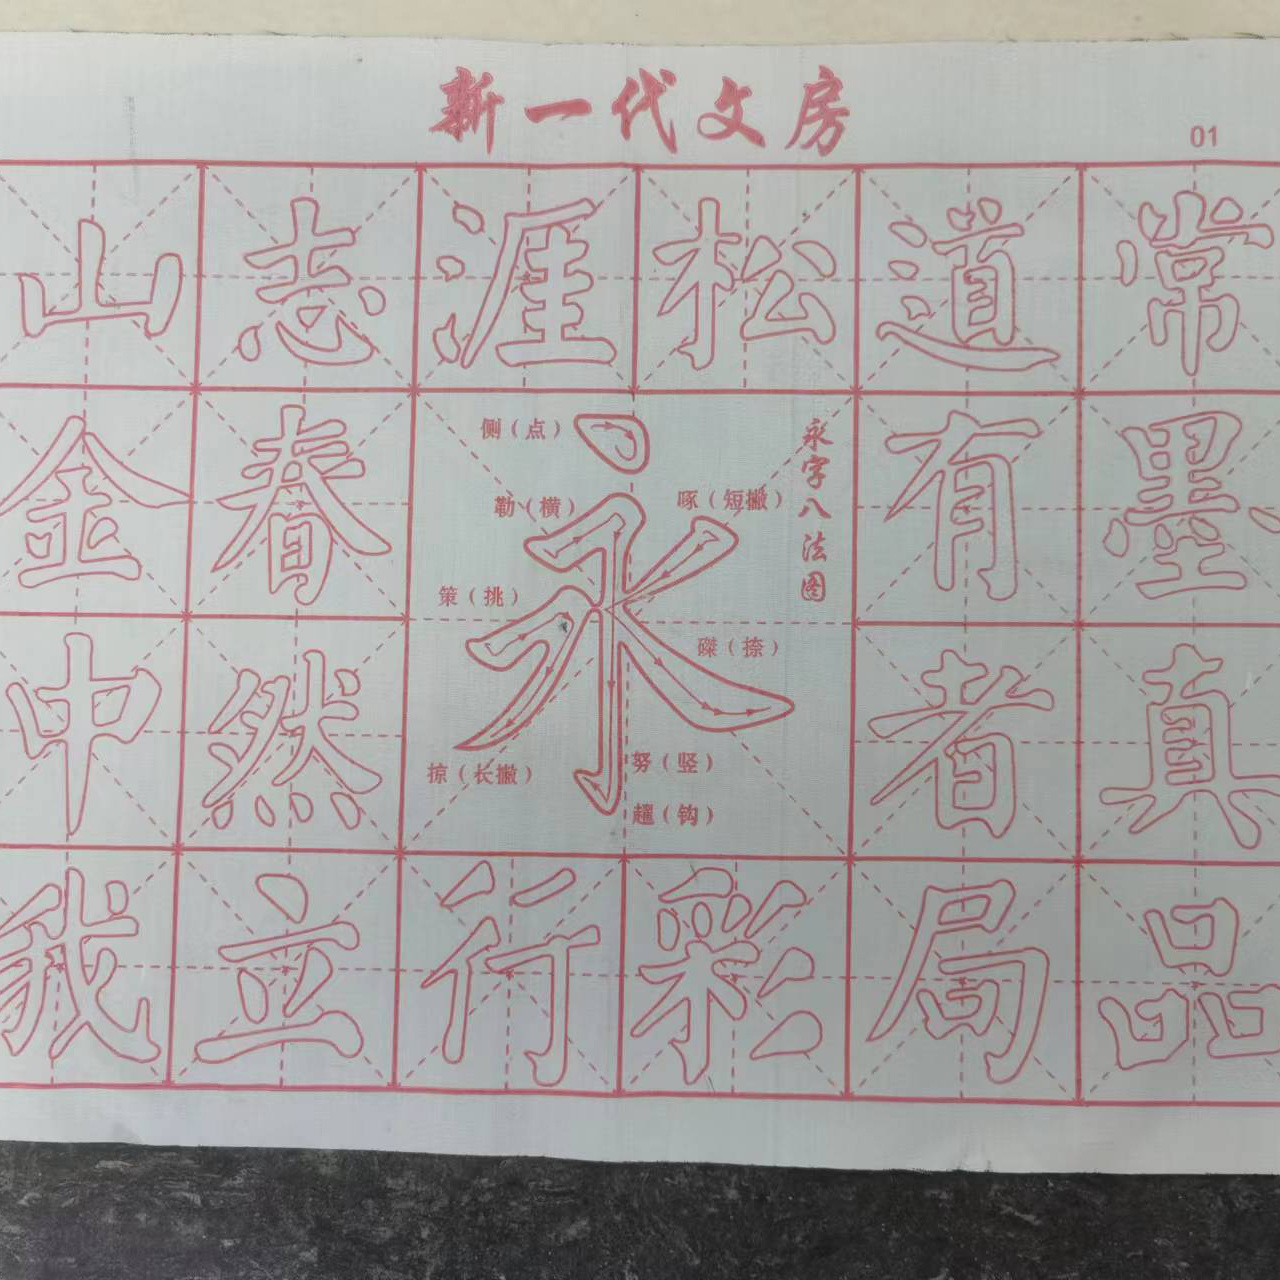 新一代文房
01
山志涯松道常
金春有墨
中然者真
我立行彩局品
永字八法图
永
侧（点）
勒（横）
啄（短撇）
策（挑）
磔（捺）
掠（长撇）
努（竖）
趯（钩）